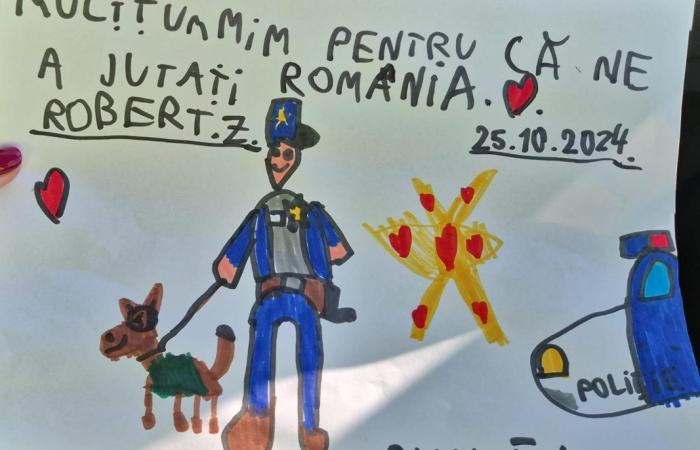 PENTRU CĂ NE
A JUTAȚI ROMÂNIA.
ROBERT.Z.
25.10.2024.
POLIȚIE